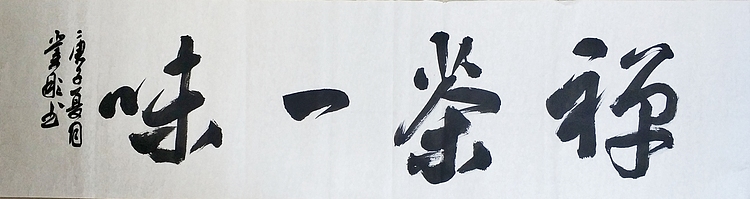 禅茶一味
庚子夏月
书